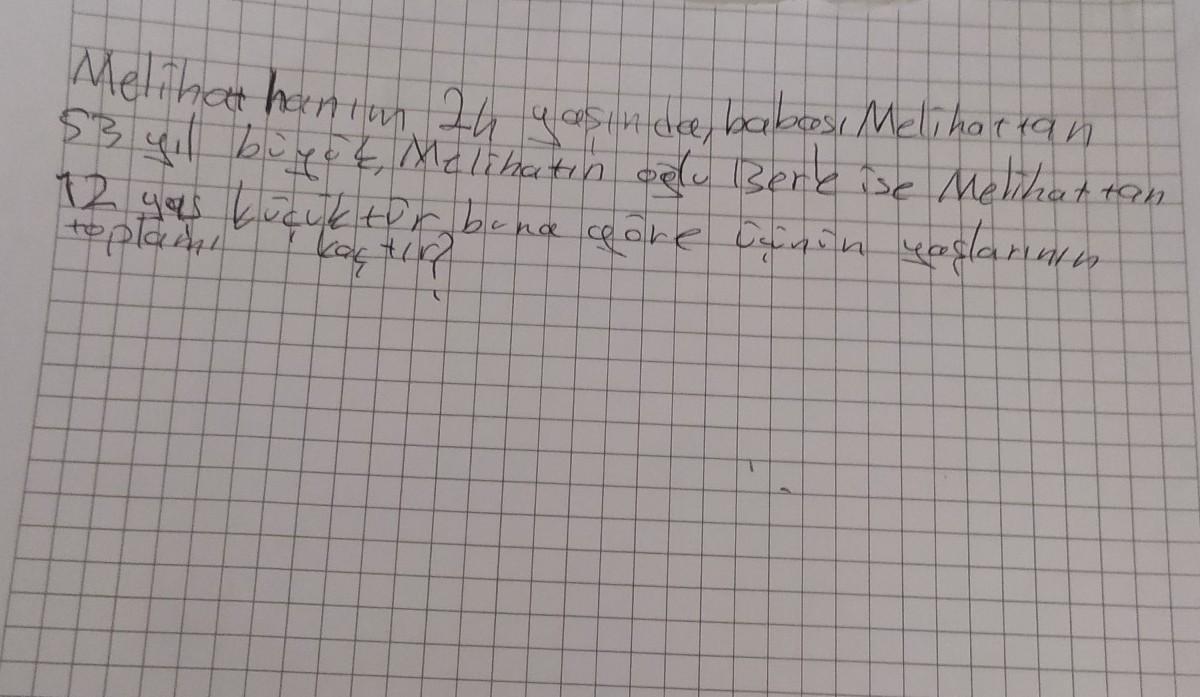 Melihat hanım 24 yaşında, babası Melihattan
53 yıl büyük, Melihatın oğlu Berk ise Melihattan
12 yaş küçüktür buna göre üçünün yaşlarının
toplamı kaçtır?